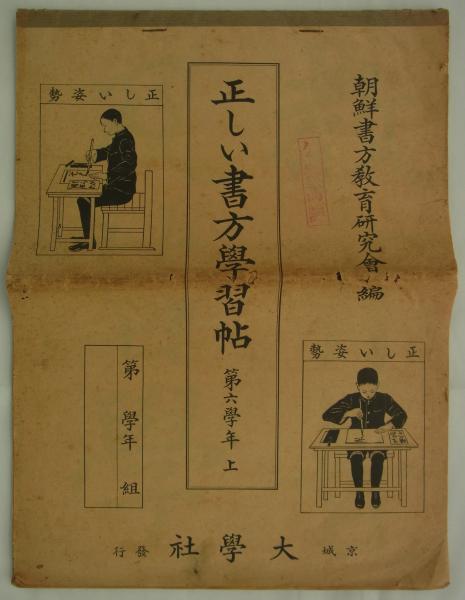 朝鮮書方教育研究會編
正しい書方學習帖
第六學年 上
正しい姿勢
正しい姿勢
第 學年 組
京城 大學社 發行